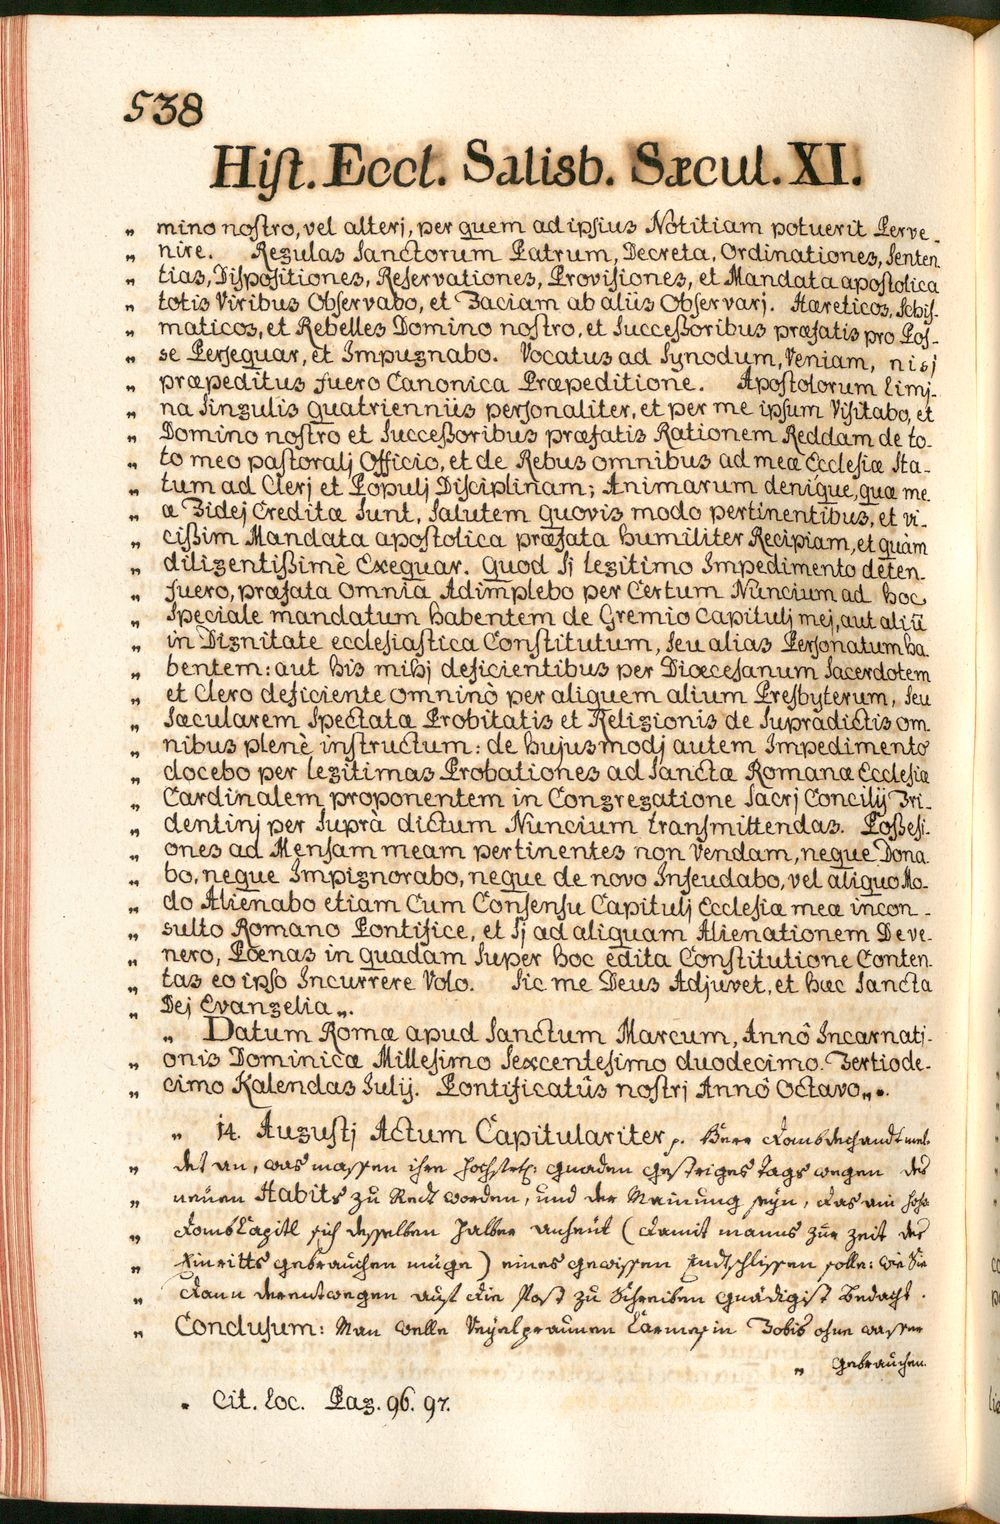 538
Hist. Eccl. Salisb. Sæcul. XI.
„ mino nostro, vel alterj, per quem ad ipsius Notitiam potuerit Perve-
„ nire. Regulas Sanctorum Patrum, Decreta, Ordinationes, Senten
„ tias, Dispositiones, Reservationes, Provisiones, et Mandata apostolica
„ totis Viribus Observabo, et Faciam ab aliis Observarj. Hæreticos, Schis-
„ maticos, et Rebelles Domino nostro, et Successoribus præfatis pro Pos-
„ se Persequar, et Impugnabo. Vocatus ad Synodum, Veniam, nisj
„ præpeditus fuero Canonica Præpeditione. Apostolorum Limj-
„ na Singulis quatrienniis personaliter, et per me ipsum Visitabo, et
„ Domino nostro et Successoribus præfatis Rationem Reddam de to-
„ to meo pastoralj Officio, et de Rebus omnibus ad meæ Ecclesiæ Sta-
„ tum ad Clerj et Populj Disciplinam; Animarum denique, quæ me
„ æ Fidej Creditæ Sunt, Salutem quovis modo pertinentibus, et vi-
„ cissim Mandata apostolica præfata humiliter Recipiam, et quàm
„ diligentissimè Exequar. Quod Sj legitimo Impedimento deten-
„ fuero, præfata omnia Adimplebo per Certum Nuncium ad hoc
„ Speciale mandatum habentem de Gremio Capitulj mej, aut aliū
„ in Dignitate ecclesiastica Constitutum, Seu alias Personatum ha
„ bentem: aut his mihj deficientibus per Diœcesanum Sacerdotem
„ et Clero deficiente omninò per aliquem alium Presbyterum, Seu
„ Sæcularem Spectatæ Probitatis et Religionis de Supradictis om
„ nibus plenè instructum: de hujusmodj autem Impedimento
„ docebo per legitimas Probationes ad Sanctæ Romanæ Ecclesiæ
„ Cardinalem proponentem in Congregatione Sacrj Concilij Tri-
„ dentinj per Suprà dictum Nuncium transmittendas. Possessi-
„ ones ad Mensam meam pertinentes non Vendam, neque Dona
„ bo, neque Impignorabo, neque de novo Infeudabo, vel aliquo Mo-
„ do Alienabo etiam Cum Consensu Capitulj Ecclesiæ meæ incon-
„ sulto Romano Pontifice, et Sj ad aliquam Alienationem Deve-
„ nero, Pœnas in quadam Super hoc edita Constitutione Conten
„ tas eo ipso Incurrere Volo. Sic me Deus Adjuvet, et hæc Sancta
„ Dej Evangelia„.
„ Datum Romæ apud Sanctum Marcum, Annô Incarnati-
„ onis Dominicæ Millesimo Sexcentesimo duodecimo. Tertio de-
„ cimo Kalendas Julij. Pontificatûs nostrj Annô Octavo„.
„ 14. Augustj Actum Capitulariter p. Herr Dombdechandt mel-
„ det an, was massen ihre hochfrtl: Gnaden gestriges Tags wegen des
„ neuen Habits zu Redt worden, und der Mainung seyn, das ein hoh
„ DombCapitl sich desselben halber anheut (damit manns zur Zeit des
„ Einritts gebrauchen müge) eines gewissen Endtschlissen solle: wie Sie
„ dann derentwegen auf die Post zu Schreiben gnädigist bedacht.
„ Conclusum: Man welle Veyelpraunen Carmesin Tobis ohne wasser
„ gebrauchen.
. Cit. Loc. Pag. 96. 97.